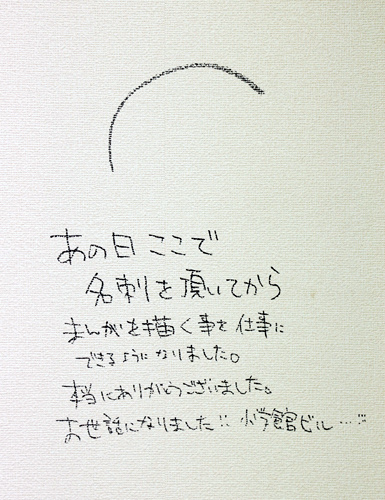 あの日ここで
名刺を頂いてから
まんがを描く事を仕事に
できるようになりました。
本当にありがとうございました。
お世話になりました!! 小学館ビル…!!